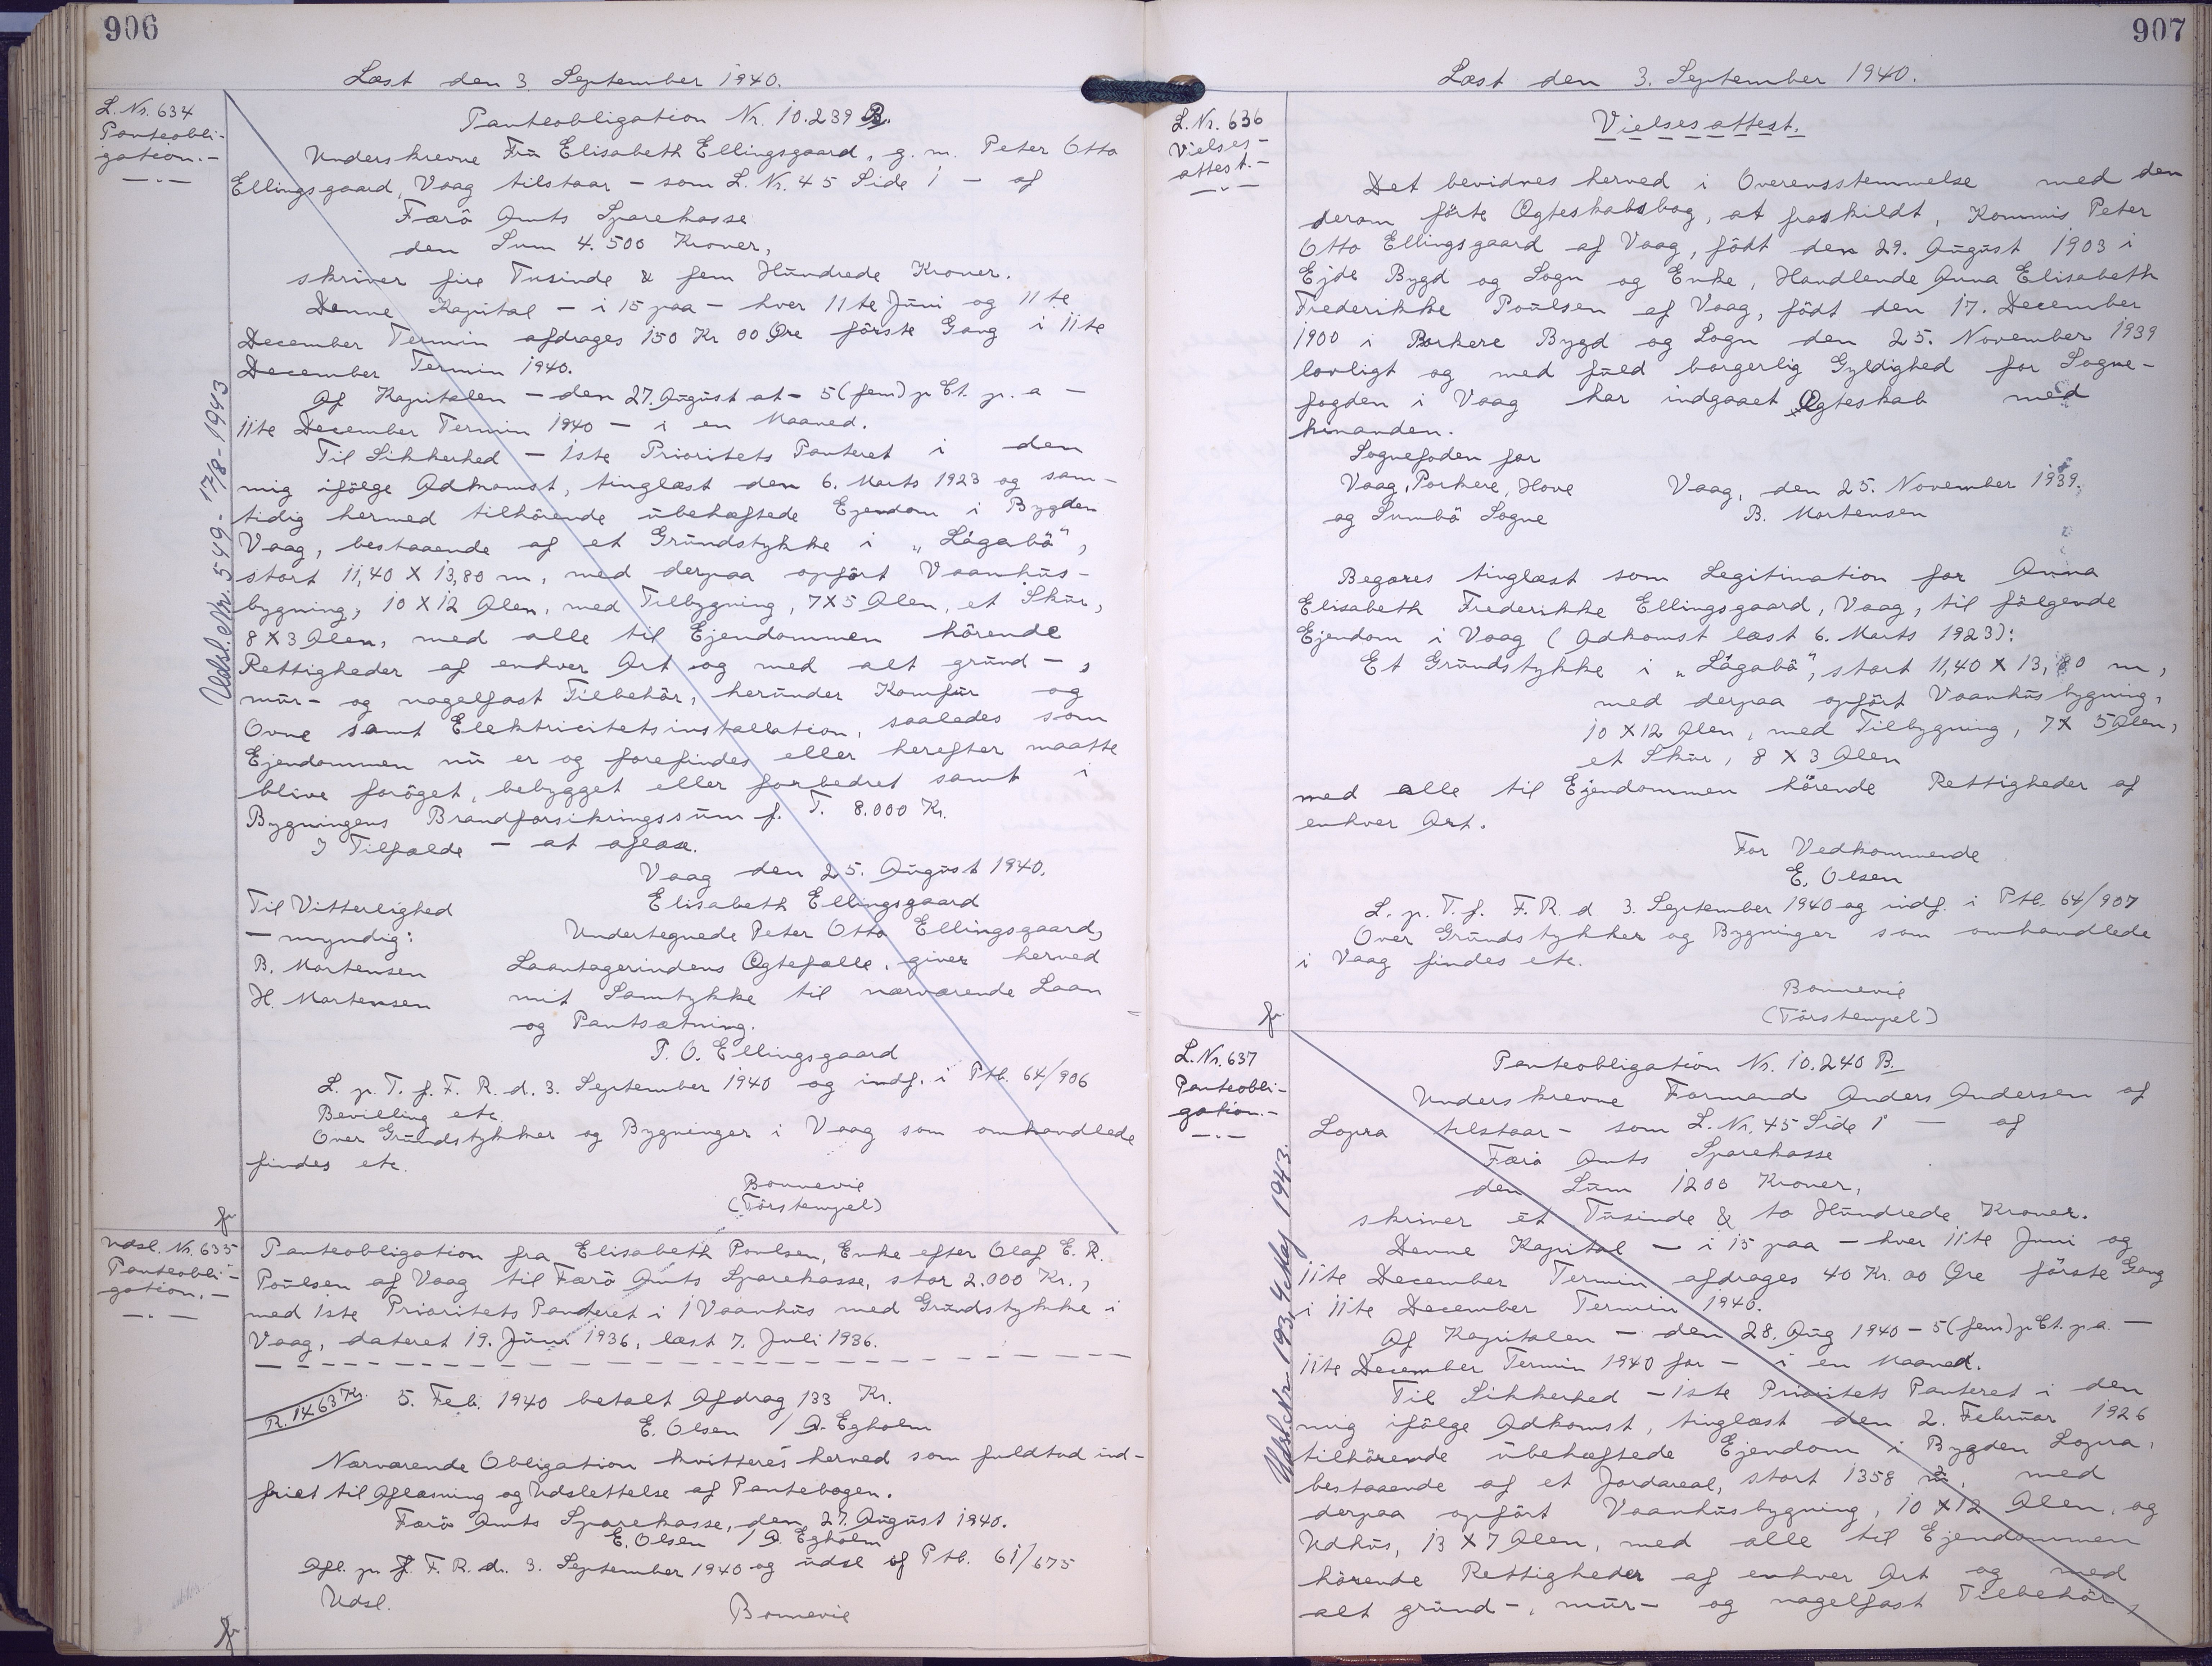 906
Læst den 3. September 1940.
L. Nr. 634
Panteobli-
gation.-
Udsl. Nr. 549 - 17/8 - 1943
Panteobligation Nr. 10.239 B.
Underskrevne Fru Elisabeth Ellingsgaard, g. m. Peter Otto
Ellingsgaard, Vaag tilstaar - som L. Nr. 45 Side 1 - af
Færö Amts Sparekasse
den Sum 4.500 Kroner,
skriver fire Tusinde & fem Hundrede Kroner.
Denne Kapital - i 15 paa - hver 11te Juni og 11te
December Termin afdrages 150 Kr 00 Øre förste Gang i 11te
December Termin 1940.
Af Kapitalen - den 27. August at - 5 (fem) p Ct. p. a -
11te December Termin 1940 - i en Maaned.
Til Sikkerhed - 1ste Prioritets Panteret i den
mig ifölge Adkomst, tinglæst den 6. Marts 1923 og sam-
tidig hermed tilhörende übehæftede Ejendom i Bygden
Vaag, bestaaende af et Grundstykke i "Lágabö",
stort 11,40 X 13,80 m, med derpaa opfört Vaanhus-
bygning, 10 X 12 Alen, med Tilbygning, 7X5 Alen, et Skur,
8 X 3 Alen, med alle til Ejendommen hörende
Rettigheder af enhver Art og med alt grund-,
mur- og nagelfast Tilbehör, herunder Komfur og
Ovne samt Elektricitetsinstallation, saaledes som
Ejendommen nu er og forefindes eller herefter maatte
blive foröget, bebygget eller forbedret samt i
Bygningens Brandforsikringssum f. T. 8.000 Kr.
I Tilfælde - at aflæse.
Vaag den 25. August 1940.
Til Vitterlighed Elisabeth Ellingsgaard
- myndig: Undertegnede Peter Otto Ellingsgaard,
B. Mortensen Laantagerindens Ægtefælle, giver herved
H. Mortensen mit Samtykke til nærværende Laan
og Pantsætning.
P. O. Ellingsgaard
L. p. T. f. F. R. d. 3. September 1940 og indf. i Ptb. 64/906
Bevilling etc.
Over Grundstykker og Bygninger i Vaag som omhandlede
findes etc.
Bonnevie
(Törstempel)
Udsl. Nr. 635
Panteobli-
gation.-
Panteobligation fra Elisabeth Poulsen, Enke efter Olaf E. R.
Poulsen af Vaag til Færö Amts Sparekasse, stor 2.000 Kr.,
med 1ste Prioritets Panteret i 1 Vaanhus med Grundstykke i
Vaag, dateret 19. Juni 1936, læst 7. Juli 1936.
R. 1463 Kr. 5. Feb. 1940 betalt Afdrag 133 Kr.
E. Olsen / A. Egholm
Nærværende Obligation kvitteres herved som fuldtud ind-
friet til Aflæsning og Udslettelse af Pantebogen.
Færö Amts Sparekasse, den 27. August 1940.
E. Olsen / A. Egholm
Afl. p. T. F. R. d. 3. September 1940 og udsl af Ptb. 61/675
Udsl. Bonnevie
907
Læst den 3. September 1940.
L. Nr. 636
Vielses-
attest.-
Vielsesattest.
Det bevidnes herved i Overensstemmelse med den
derom förte Ægteskabsbog, at fraskildt, Kommis Peter
Otto Ellingsgaard af Vaag, födt den 29. August 1903 i
Ejde Bygd og Sogn og Enke, Handlende Anna Elisabeth
Frederikke Poulsen af Vaag, födt den 17. December
1900 i Porkere Bygd og Sogn den 25. November 1939
lovligt og med fuld borgerlig Gyldighed for Sogne-
fogden i Vaag har indgaaet Ægteskab med
hinanden.
Sognefoden for
Vaag, Porkere, Hove Vaag, den 25. November 1939.
og Sumbö Sogne B. Mortensen
Begæres tinglæst som Legitimation for Anna
Elisabeth Frederikke Ellingsgaard, Vaag, til fölgende
Ejendom i Vaag (Adkomst læst 6. Marts 1923):
Et Grundstykke i "Lágabö", stort 11,40 X 13,80 m,
med derpaa opfört Vaanhusbygning,
10 X 12 Alen, med Tilbygning, 7X 5 Alen,
et Skur, 8 X 3 Alen
med alle til Ejendommen hörende Rettigheder af
enhver Art.
For Vedkommende
E. Olsen
L. p. T. f. F. R. d 3. September 1940 og indf. i Ptb. 64/907
Over Grundstykker og Bygninger som omhandlede
i Vaag findes etc.
Bonnevie
(Törstempel)
L. Nr. 637
Panteobli-
gation.-
Udsl. Nr. 193, 4 Maj 1943.
Panteobligation Nr. 10.240 B.
Underskrevne Formand Anders Andersen af
Lopra tilstaar - som L. Nr. 45 Side 1 - af
Færö Amts Sparekasse
den Sum 1200 Kroner,
skriver et Tusinde & to Hundrede Kroner.
Denne Kapital - i 15 paa - hver 11te Juni og
11te December Termin afdrages 40 Kr. 00 Øre förste Gang
i 11te December Termin 1940.
Af Kapitalen - den 28. Aug 1940 - 5 (fem) p Ct. p.a. -
11te December Termin 1940 for - i en Maaned.
Til Sikkerhed - 1ste Prioritets Panteret i den
mig ifölge Adkomst, tinglæst den 2. Februar 1926
tilhörende übehæftede Ejendom i Bygden Lopra,
bestaaende af et Jordareal, stort 1358 m², med
derpaa opfört Vaanhusbygning, 10 X 12 Alen, og
Udhus, 13 X 7 Alen, med alle til Ejendommen
hörende Rettigheder af enhver Art og med
alt grund-, mur- og nagelfast Tilbehör,